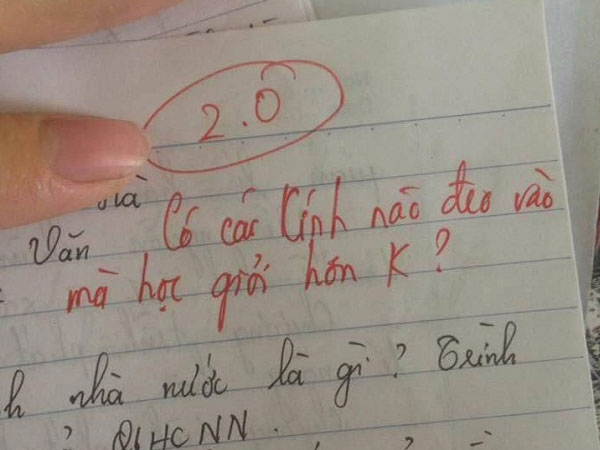 2.0
Có cái kính nào đeo vào
Văn
mà học giỏi hơn K?
nhà nước là gì? Trình
QLHCNN.